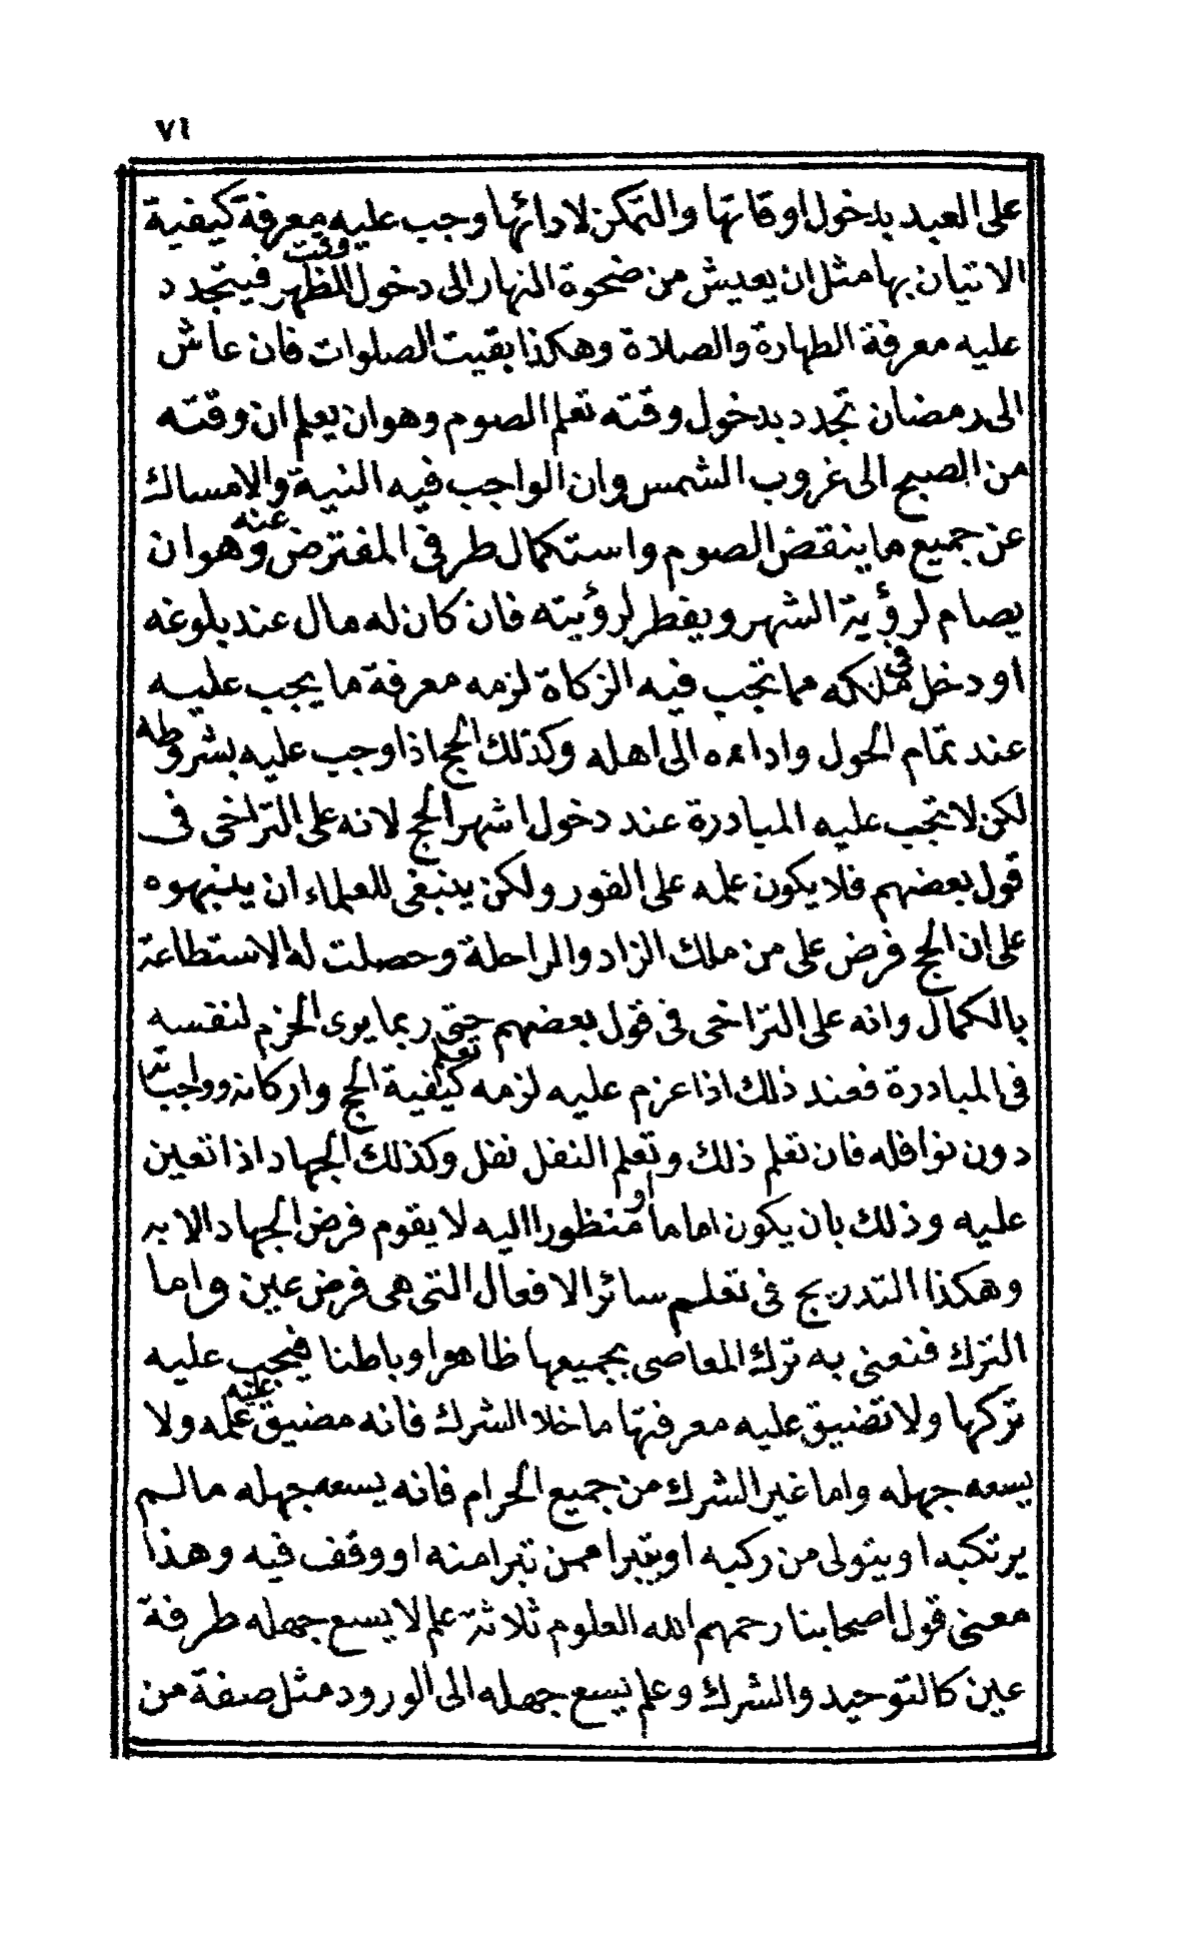 ٧١
على العبد بدخول اوقاتها والتمكن لادائها وجب عليه معرفة كيفية
الاتيان بها مثل ان يعيش من ضحوة النهار الى دخول وقت الظهر فيتجدد
عليه معرفة الطهارة والصلاة وهكذا بقيت الصلوات فان عاش
الى رمضان تجدد بدخول وقته تعلم الصوم وهو ان يعلم ان وقته
من الصبح الى غروب الشمس وان الواجب فيه النية والامساك
عن جميع ما ينقض الصوم واستكمال طرفى المفترض عنه وهو ان
يصام لرؤية الشهر ويفطر لرؤيته فان كان له مال عند بلوغه
او دخل فى ملكه مما تجب فيه الزكاة لزمه معرفة ما يجب عليه
عند تمام الحول واداءه الى اهله وكذلك الحج اذا وجب عليه بشروطه
لكن لا تجب عليه المبادرة عند دخول اشهر الحج لانه على التراخى فى
قول بعضهم فلا يكون علمه على الفور ولكن ينبغى للعلماء ان ينبهوه
على ان الحج فرض على من ملك الزاد والراحلة وحصلت له الاستطاعة
بالكمال وانه على التراخى فى قول بعضهم حتى ربما يرى الحزم لنفسه
فى المبادرة فعند ذلك اذا عزم عليه لزمه تعلم كيفية الحج واركانه وواجباته
دون نوافله فان تعلم ذلك وتعلم النفل نفل وكذلك الجهاد اذا تعين
عليه وذلك بان يكون اماما او منظورا اليه لا يقوم فرض الجهاد الا به
وهكذا التدريج فى تعلم سائر الافعال التى هى فرض عين واما
الترك فنعنى به ترك المعاصى بجميعها ظاهرا وباطنا فيجب عليه
تركها ولا تضيق عليه معرفتها ما خلا الشرك فانه مضيق عليه علمه ولا
يسعه جهله واما غير الشرك من جميع الحرام فانه يسعه جهله مالم
يرتكبه او يتولى من ركبه او يتبرا ممن تبرا منه او وقف فيه وهذا
معنى قول اصحابنا رحمهم الله العلوم ثلاثة علم لا يسع جهله طرفة
عين كالتوحيد والشرك وعلم يسع جهله الى الورود مثل صفة من